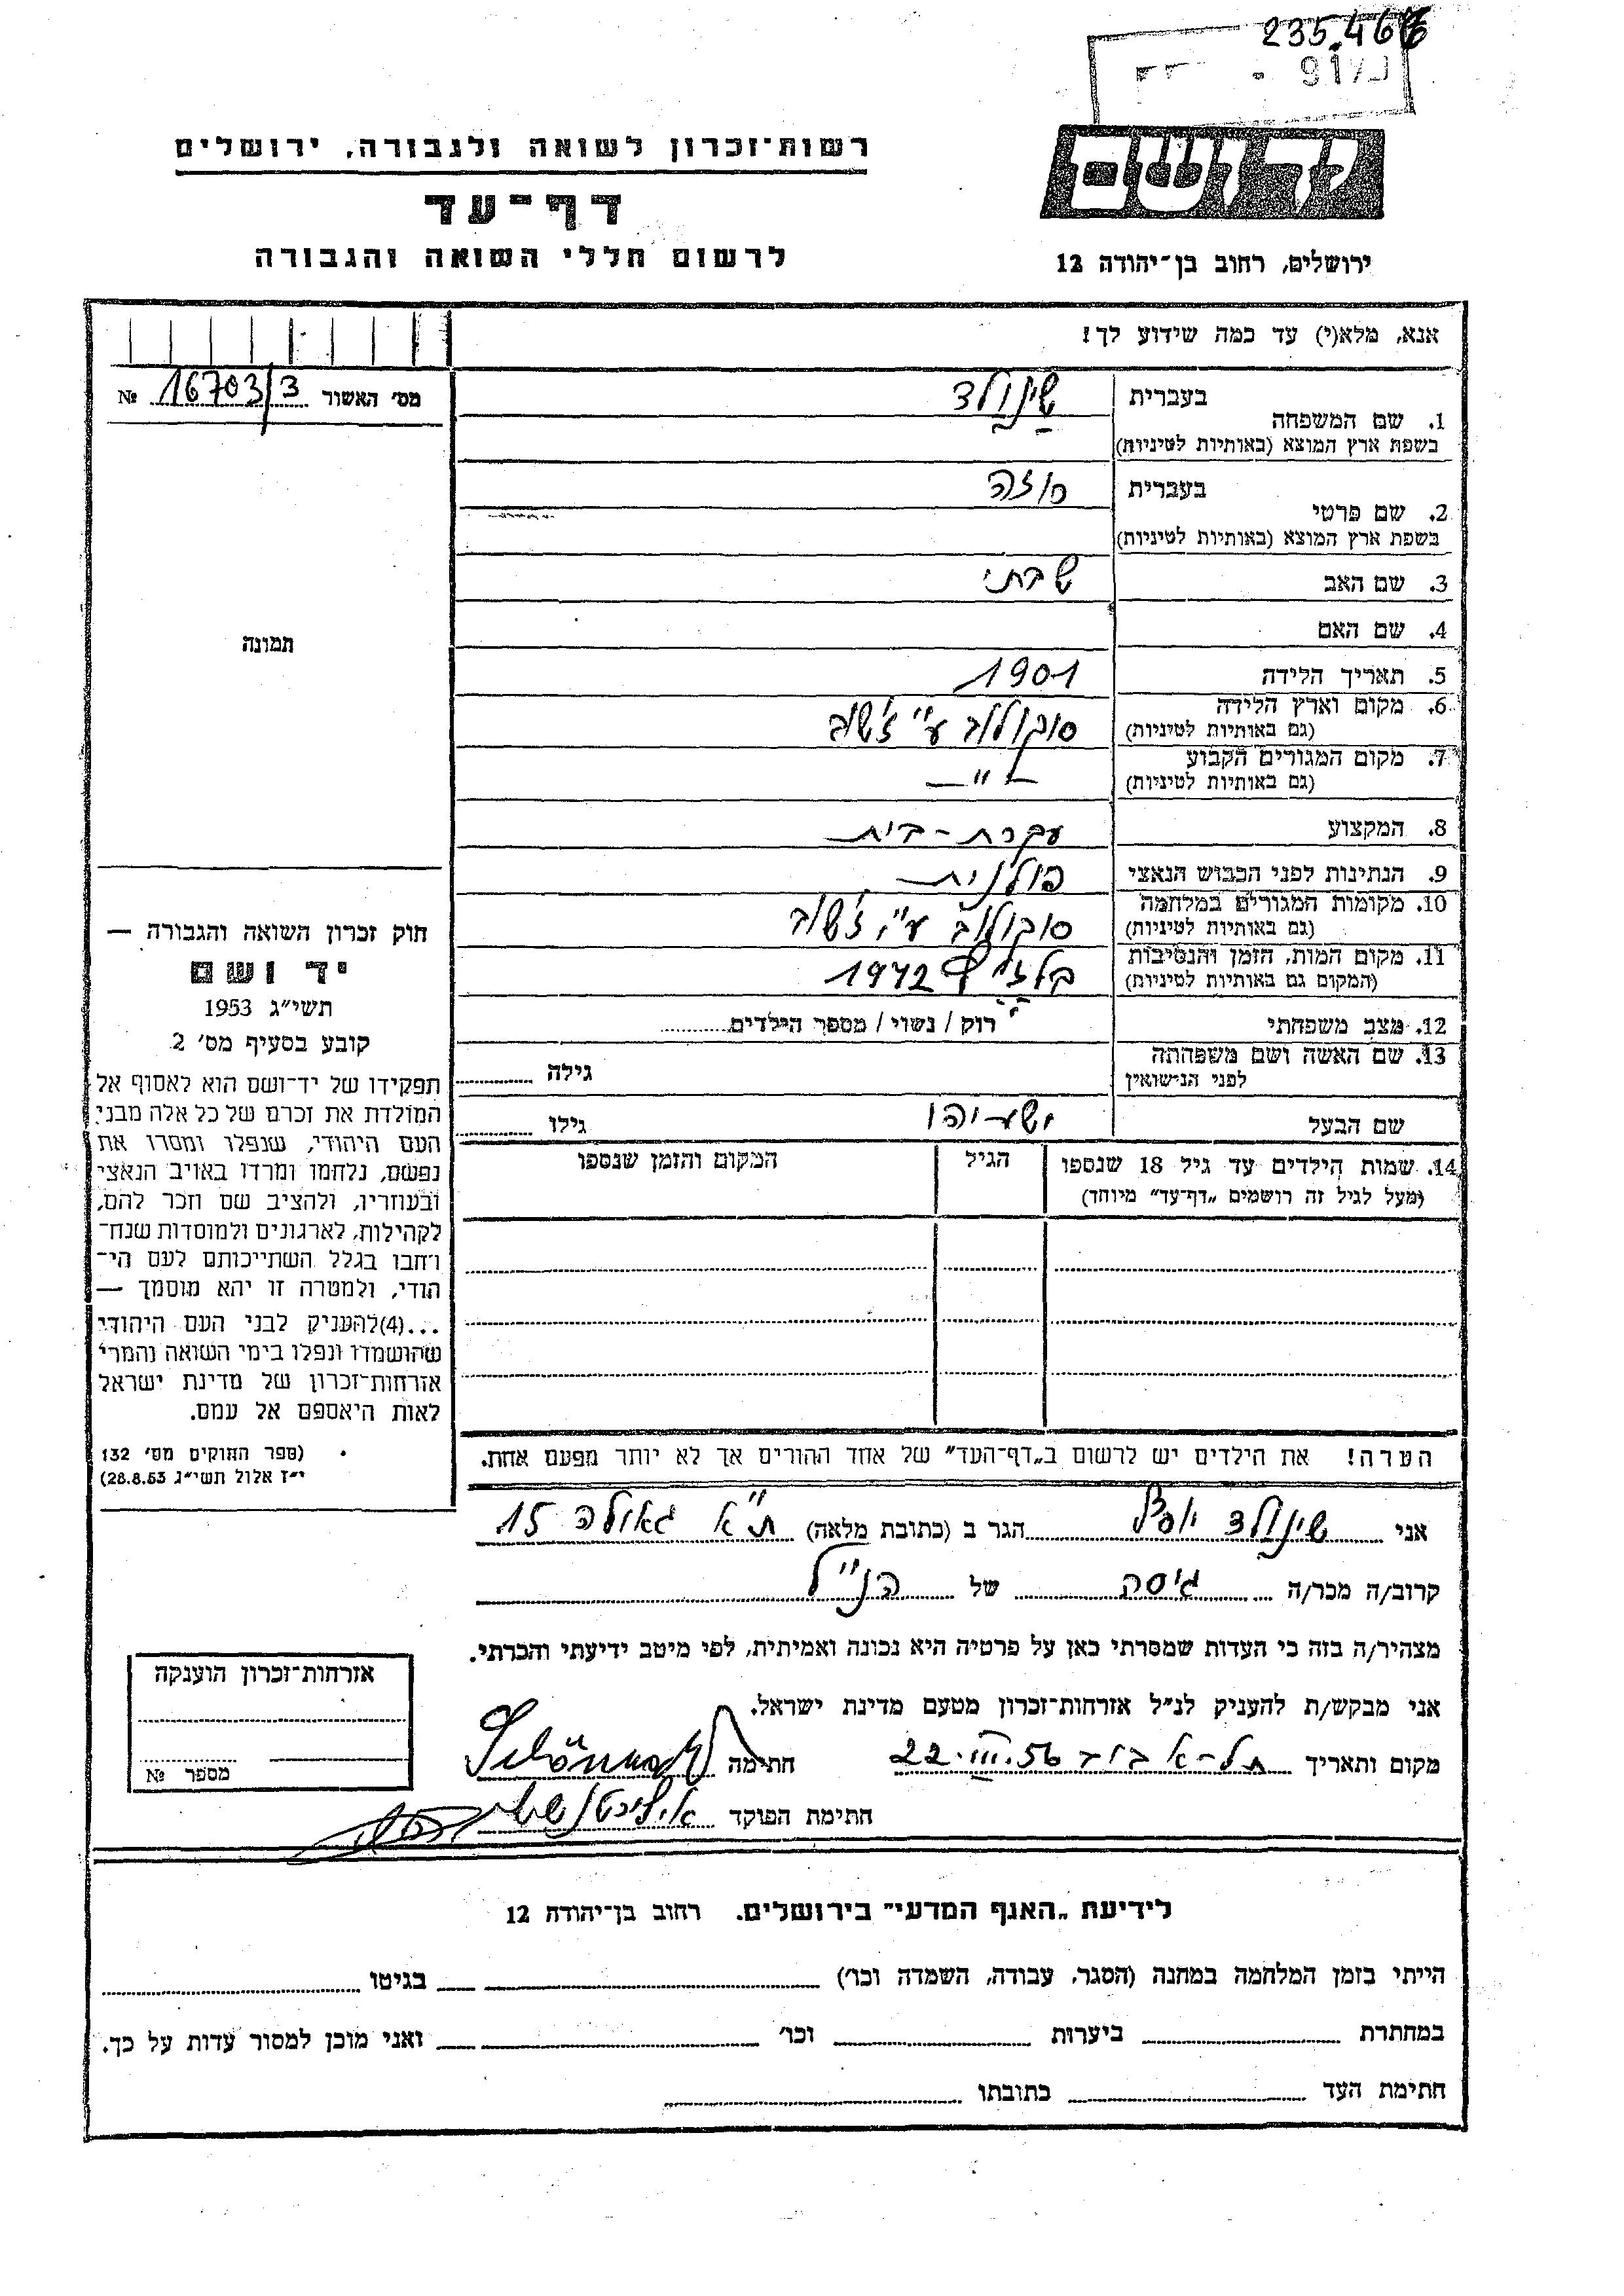 235.467
יד ושם
רשות־זכרון לשואה ולגבורה, ירושלים
דף־עד
לרשום חללי השואה והגבורה
ירושלים, רחוב בן־יהודה 12
אנא, מלא(י) עד כמה שידוע לך!
מס׳ האשור 16703/3 №
1. שם המשפחה
בעברית שינולד
בשפת ארץ המוצא (באותיות לטיניות)
2. שם פרטי
בעברית רוזה
בשפת ארץ המוצא (באותיות לטיניות)
3. שם האב שבתי
4. שם האם
5. תאריך הלידה 1901
6. מקום וארץ הלידה סוקולוב ע"י ז'שוב
(גם באותיות לטיניות)
7. מקום המגורים הקבוע – " –
(גם באותיות לטיניות)
8. המקצוע עקרת-בית
9. הנתינות לפני הכבוש הנאצי פולנית
10. מקומות המגורים במלחמה סוקולוב ע"י ז'שוב
(גם באותיות לטיניות)
11. מקום המות, הזמן והנסיבות בלזץ 1942
(המקום גם באותיות לטיניות)
12. מצב משפחתי רוק / נשוי / מספר הילדים
13. שם האשה ושם משפחתה גילה
לפני הנישואין
שם הבעל ישעיהו גילו
14. שמות הילדים עד גיל 18 שנספו הגיל המקום והזמן שנספו
(מעל לגיל זה רושמים „דף־עד" מיוחד)
הערה! את הילדים יש לרשום ב„דף־העד" של אחד ההורים אך לא יותר מפעם אחת.
תמונה
חוק זכרון השואה והגבורה —
יד ושם
תשי״ג 1953
קובע בסעיף מס׳ 2
תפקידו של יד־ושם הוא לאסוף אל
המולדת את זכרם של כל אלה מבני
העם היהודי, שנפלו ומסרו את
נפשם, נלחמו ומרדו באויב הנאצי
ובעוזריו, ולהציב שם וזכר להם,
לקהילות, לארגונים ולמוסדות שנח־
רבו בגלל השתייכותם לעם הי־
הודי, ולמטרה זו יהא מוסמך —
...(4)להעניק לבני העם היהודי
שהושמדו ונפלו בימי השואה והמרי
אזרחות־זכרון של מדינת ישראל
לאות היאספם אל עמם.
(ספר החוקים מס׳ 132
י״ז אלול תשי״ג 28.8.53)
אני שינולד יוסף הגר ב (כתובת מלאה) ת"א גאולה 15
קרוב/ה מכר/ה גיסה של הנ"ל
מצהיר/ה בזה כי העדות שמסרתי כאן על פרטיה היא נכונה ואמיתית, לפי מיטב ידיעתי והכרתי.
אני מבקש/ת להעניק לנ״ל אזרחות־זכרון מטעם מדינת ישראל.
מקום ותאריך תל-אביב 22.III.56 חתימה
חתימת הפוקד
אזרחות־זכרון הוענקה
מספר №
לידיעת „האגף המדעי" בירושלים. רחוב בן־יהודה 12
הייתי בזמן המלחמה במחנה (הסגר, עבודה, השמדה וכו׳) בגיטו
במחתרת ביערות וכו׳ ואני מוכן למסור עדות על כך.
חתימת העד כתובתו